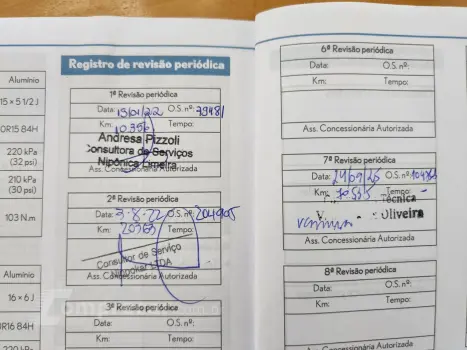 Alumínio
15 x 5 1/2 J
0R15 84H
220 kPa
(32 psi)
210 kPa
(30 psi)
103 N.m
Alumínio
16 x 6 J
R16 84H
220 kPa
Registro de revisão periódica
1ª Revisão periódica
Data: 13/01/22 O.S. nº: 79481
Km: 10.356 Tempo:
Andresa Pizzoli
Consultora de Serviços
Nipônica Limeira
Ass. Concessionária Autorizada
2ª Revisão periódica
Data: 3-8-22 O.S. nº: 204905
Km: 20363 Tempo:
Consultor de Serviço
LTDA
Ass. Concessionária Autorizada
3ª Revisão periódica
Data: O.S. nº:
Km: Tempo:
6ª Revisão periódica
Data: O.S. nº:
Km: Tempo:
Ass. Concessionária Autorizada
7ª Revisão periódica
Data: O.S. nº
Km: 70555 Tempo: -
Técnica
Oliveira
Ass. Concessionária Autorizada
8ª Revisão periódica
Data: O.S. nº:
Km: Tempo:
Ass. Concessionária Autorizada